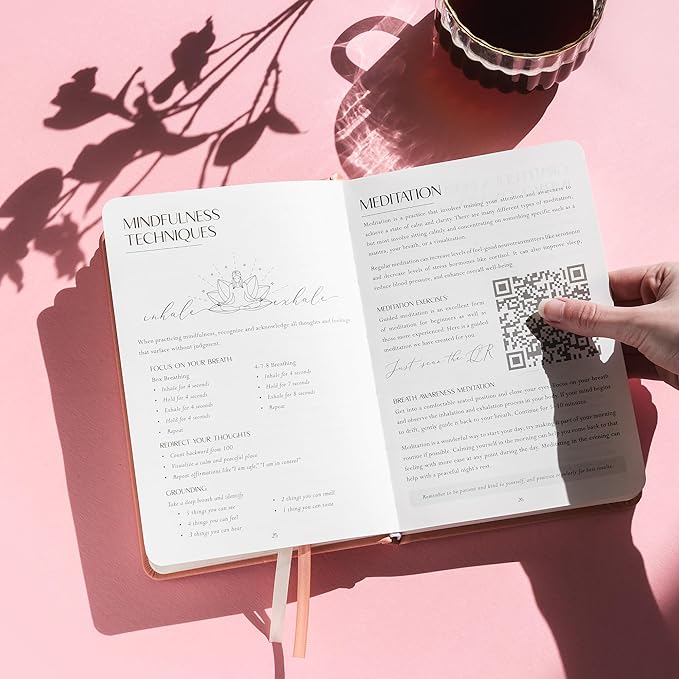 MINDFULNESS
TECHNIQUES
inhale exhale
When practicing mindfulness, recognize and acknowledge all thoughts and feelings
that surface without judgment.
FOCUS ON YOUR BREATH
Box Breathing
• Inhale for 4 seconds
• Hold for 4 seconds
• Exhale for 4 seconds
• Hold for 4 seconds
• Repeat
4-7-8 Breathing
• Inhale for 4 seconds
• Hold for 7 seconds
• Exhale for 8 seconds
• Repeat
REDIRECT YOUR THOUGHTS
• Count backward from 100
• Visualize a calm and peaceful place
• Repeat affirmations like "I am safe," "I am in control"
GROUNDING
Take a deep breath and identify
• 5 things you can see
• 4 things you can feel
• 3 things you can hear
• 2 things you can smell
• 1 thing you can taste
25
MEDITATION
Meditation is a practice that involves training your attention and awareness to
achieve a state of calm and clarity. There are many different types of meditation,
but most involve sitting calmly and concentrating on something specific such as a
mantra, your breath, or a visualization.
Regular meditation can increase levels of feel-good neurotransmitters like serotonin
and decrease levels of stress hormones like cortisol. It can also improve sleep,
reduce blood pressure, and enhance overall well-being.
MEDITATION EXERCISES
Guided meditation is an excellent form
of meditation for beginners as well as
those more experienced. Here is a guided
meditation we have created for you.
Just scan the QR
BREATH AWARENESS MEDITATION
Get into a comfortable seated position and close your eyes. Focus on your breath
and observe the inhalation and exhalation process in your body. If your mind begins
to drift, gently guide it back to your breath. Continue for 5-10 minutes.
Meditation is a wonderful way to start your day, try making it part of your morning
routine if possible. Calming yourself in the morning can help you come back to that
feeling with more ease at any point during the day. Meditating in the evening can
help with a peaceful night's rest.
Remember to be patient and kind to yourself, and practice regularly for best results.
26